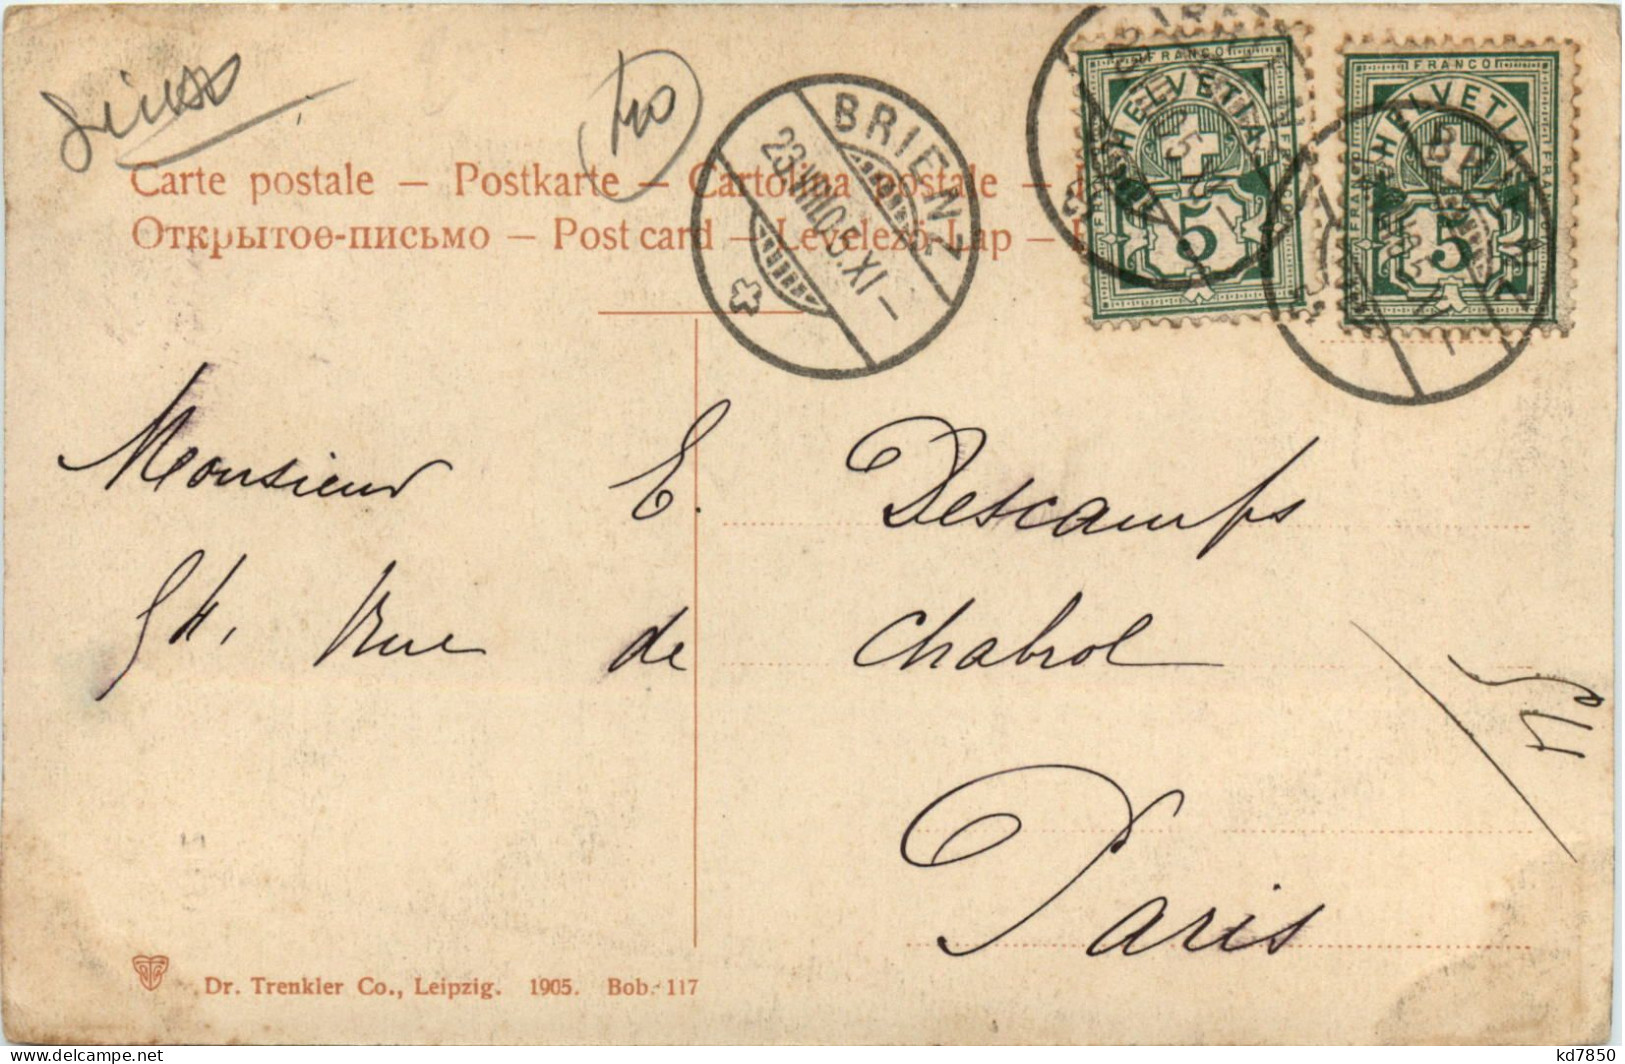 Suisse
Carte postale — Postkarte — Cartolina postale —
Открытое-письмо — Post card — Levelező-Lap —
BRIENZ
23.VIII.05.XI—
FRANCO
HELVETIA
5
FRANCO
HELVETIA
5
BRIENZ
Monsieur E. Descamps
54, Rue de Chabrol
Paris
Dr. Trenkler Co., Leipzig. 1905. Bob. 117
kd7850
delcampe.net